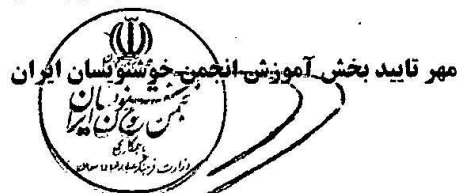 مهر تایید بخش آموزش انجمن خوشنویسان ایران
انجمن خوشنویسان ایران